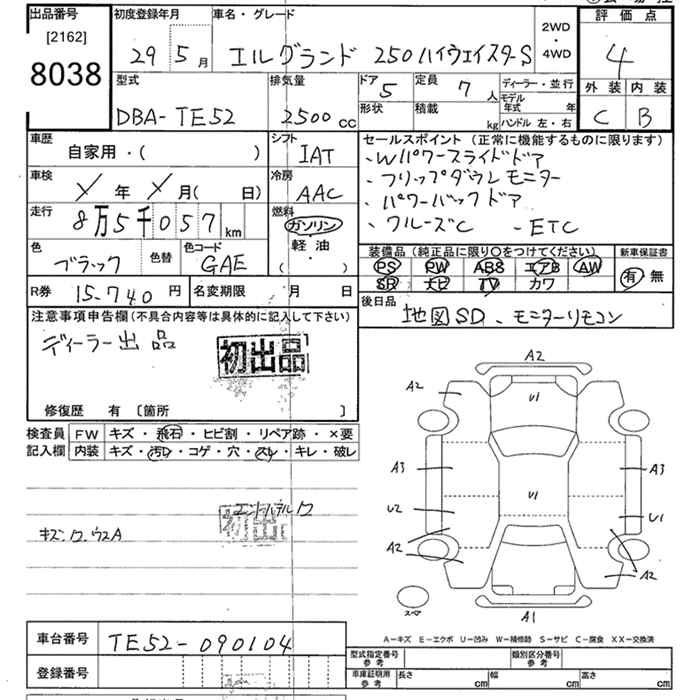 出品番号 初度登録年月 車名・グレード 評価点
[2162] 29年 5月 エルグランド 250ハイウェイスターS 2WD・4WD 4
8038
型式 排気量 ドア 5 定員 7人 ディーラー・並行 外装 内装
DBA-TE52 2500cc 形状 積載 kg モデル年式 年 ハンドル 左・右 C B
車歴 シフト セールスポイント (正常に機能するものに限ります)
自家用・( ) IAT ・Wパワースライドドア
車検 冷房 ・フリップダウンモニター
年 月( 日) AAC ・パワーバックドア
走行 燃料 ・クルーズC -ETC
8万5千057km ガソリン
軽油
・( )
色 色替 色コード 装備品 (純正品に限り○をつけてください) 新車保証書
ブラック GAE PS PW ABS エアB AW 有・無
SR ナビ TV カワ
R券 15-740円 名変期限 月 日 後日品
地図SD、モニターリモコン
注意事項申告欄(不具合内容等は具体的に記入して下さい)
ディーラー出品 初出品
修復歴 有 〔箇所 〕
検査員 FW キズ・飛石・ヒビ割・リペア跡・×要
記入欄 内装 キズ・汚レ・コゲ・穴・スレ・キレ・破レ
初出
キズ・ワ・ウスA
A2
A2 U1 A2
A3 A3
U2 U1 U1
A2 A2
スペア A1
A-キズ E-エクボ U-凹み W-補修跡 S-サビ C-腐食 XX-交換済
車台番号 TE52-090104
登録番号
型式指定番号 参考 類別区分番号 参考
車庫証明用 参考 長さ cm 幅 cm 高さ cm